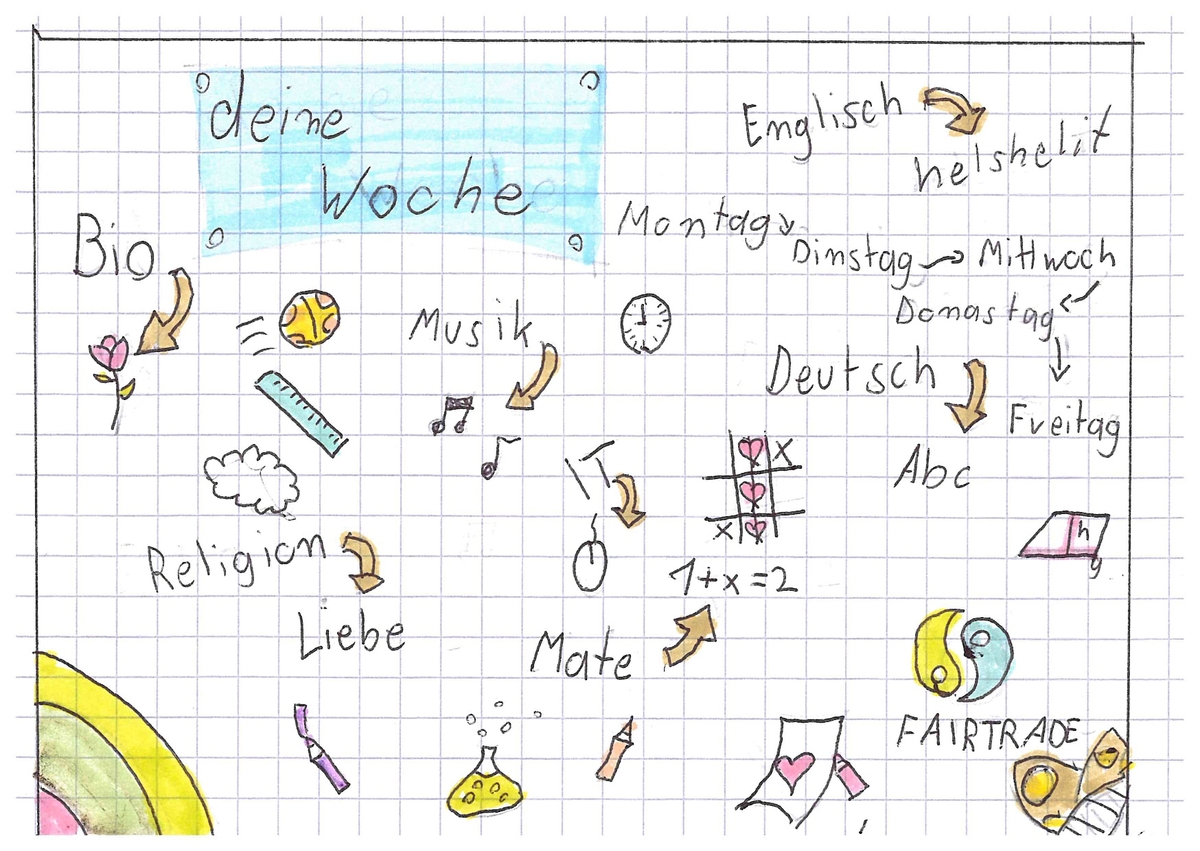 deine
Woche
Englisch
helshelit
Montag
Dinstag
Mittwoch
Donastag
Freitag
Bio
Musik
Deutsch
Abc
IT
h
g
Religion
Liebe
1+x=2
Mate
x
x
FAIRTRADE